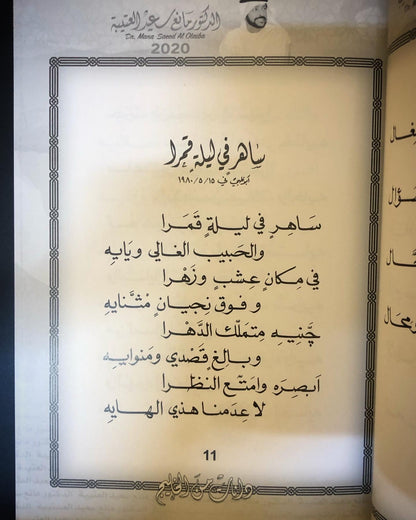 الدكتور مانع سعيد العتيبة
Dr. Mana Saeed Al Otaiba
2020
ساهر في ليلة قمرا
أبوظبي في ١٩٨٠/٥/١٥
سَاهِرٍ في ليلةٍ قَمَرا
والحَبيب الغالي وِيَايِه
في مِكانٍ عشبٍ وزَهْرا
وفوق نِجيانٍ مْثَنايِه
چَنِّيه مِتمَلّك الدَّهْرا
وبالِغٍ قَصْدي ومَنوايِه
اَبصِرَه وامَتِّع النظرا
لا عِدَمنا هذي الهايِه
11